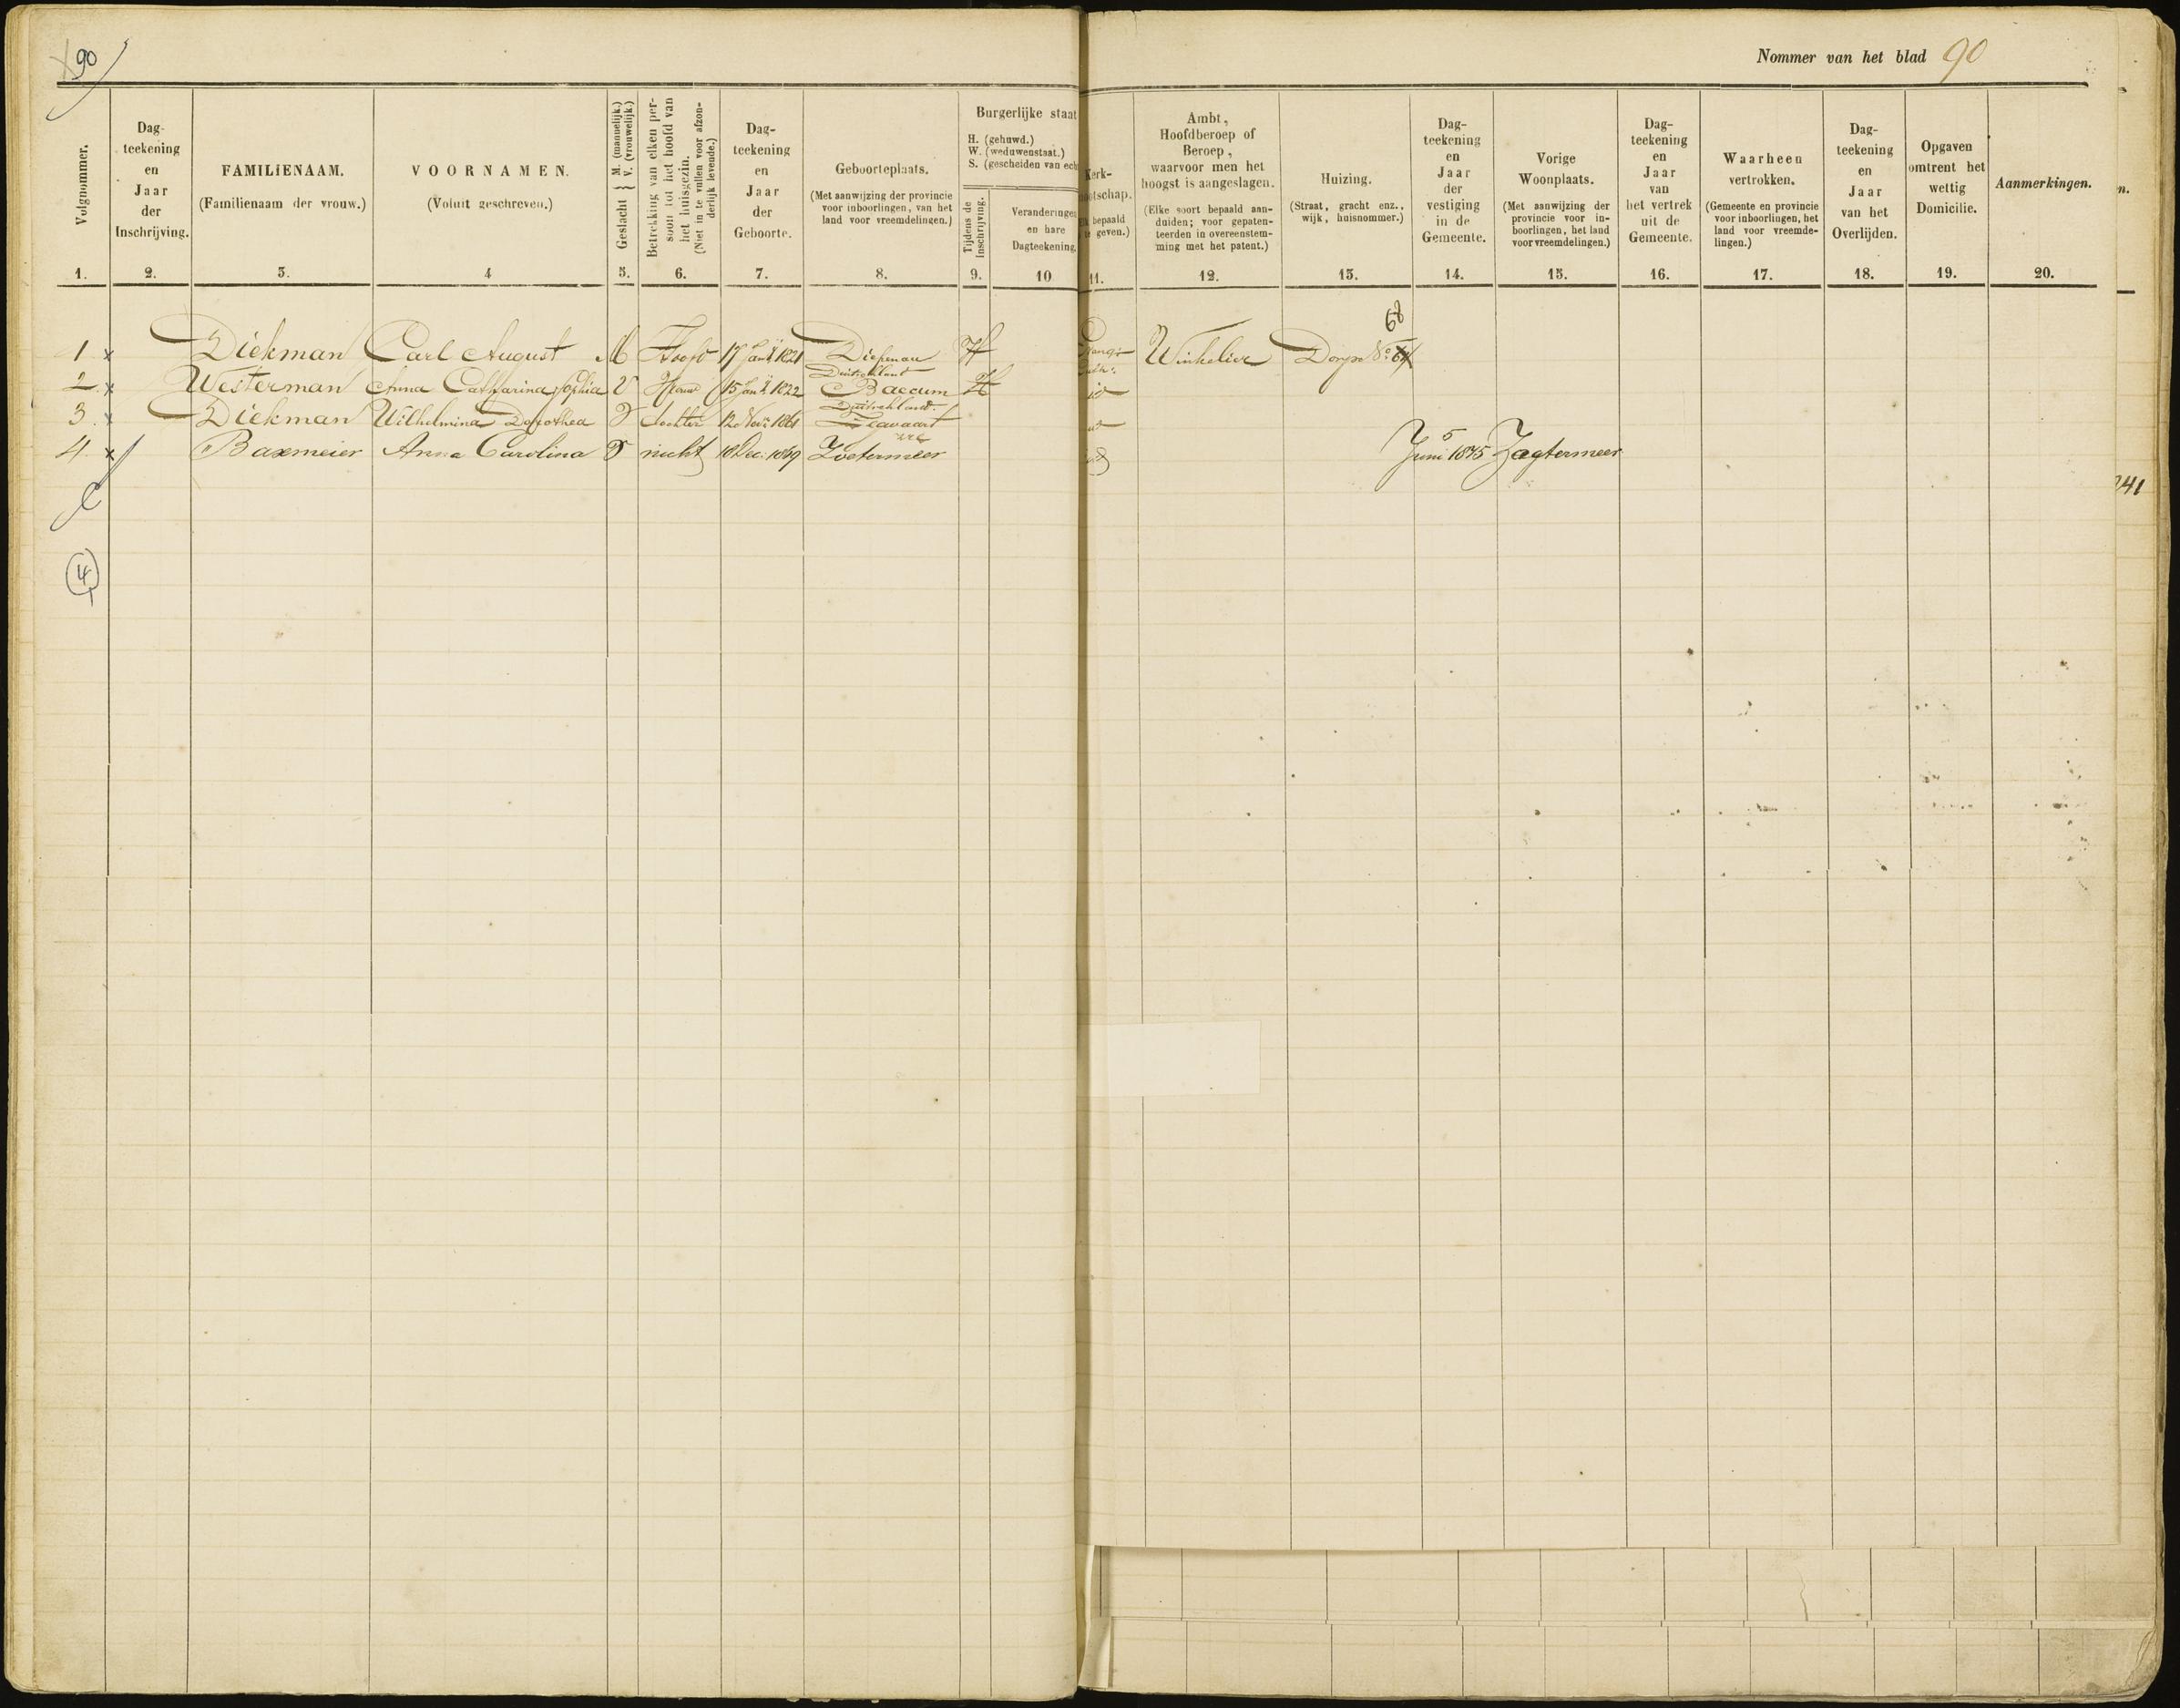 90
Nommer van het blad 90
Volgnommer.
1.
Dag-
teekening
en
Jaar
der
Inschrijving.
2.
FAMILIENAAM.
(Familienaam der vrouw.)
3.
VOORNAMEN.
(Voluit geschreven.)
4
Geslacht { M. (mannelijk.)
V. (vrouwelijk.)
5.
Betrekking van elken per-
soon tot het hoofd van
het huisgezin.
(Niet in te vullen voor afzon-
derlijk levende.)
6.
Dag-
teekening
en
Jaar
der
Geboorte.
7.
Geboorteplaats.
(Met aanwijzing der provincie
voor inboorlingen, van het
land voor vreemdelingen.)
8.
Burgerlijke staat
H. (gehuwd.)
W. (weduwenstaat.)
S. (gescheiden van ech
Tijdens de
Inschrijving.
9.
Veranderingen
en hare
Dagteekening.
10
Kerk-
bepaald
geven.)
11.
Ambt,
Hoofdberoep of
Beroep,
waarvoor men het
hoogst is aangeslagen.
(Elke soort bepaald aan-
duiden; voor gepaten-
teerden in overeenstem-
ming met het patent.)
12.
Huizing.
(Straat, gracht enz.,
wijk, huisnommer.)
13.
Dag-
teekening
en
Jaar
der
vestiging
in de
Gemeente.
14.
Vorige
Woonplaats.
(Met aanwijzing der
provincie voor in-
boorlingen, het land
voor vreemdelingen.)
15.
Dag-
teekening
en
Jaar
van
het vertrek
uit de
Gemeente.
16.
Waarheen
vertrokken.
(Gemeente en provincie
voor inboorlingen, het
land voor vreemde-
lingen.)
17.
Dag-
teekening
en
Jaar
van het
Overlijden.
18.
Opgaven
omtrent het
wettig
Domicilie.
19.
Aanmerkingen.
20.
n.
68
1 x Diekman Carl August M Hoofd 17 Janij 1821 Diepenau H Winkelier Dorp No 64
Duitschland
2 x Westerman Anna Catharina Sophia V Vrouw 15 Janij 1822 Baccum H
Duitschland
3. x Diekman Wilhelmina Dorothea V dochter 12 Nov. 1861
4. x Baxmeier Anna Carolina V nicht 18 Dec. 1869 Zoetermeer 5 Juni 1875 Zegtermeer
241
4